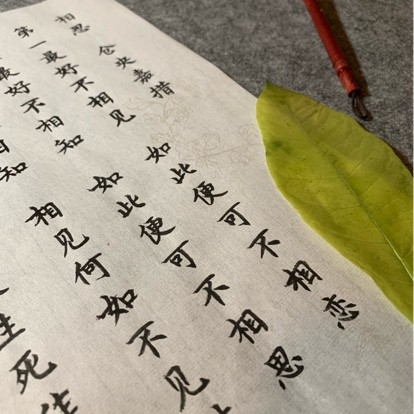 相思 仓央嘉措
第一最好不相见 如此便可不相恋
最好不相知 如此便可不相思
相知 相见何如不见
生死作